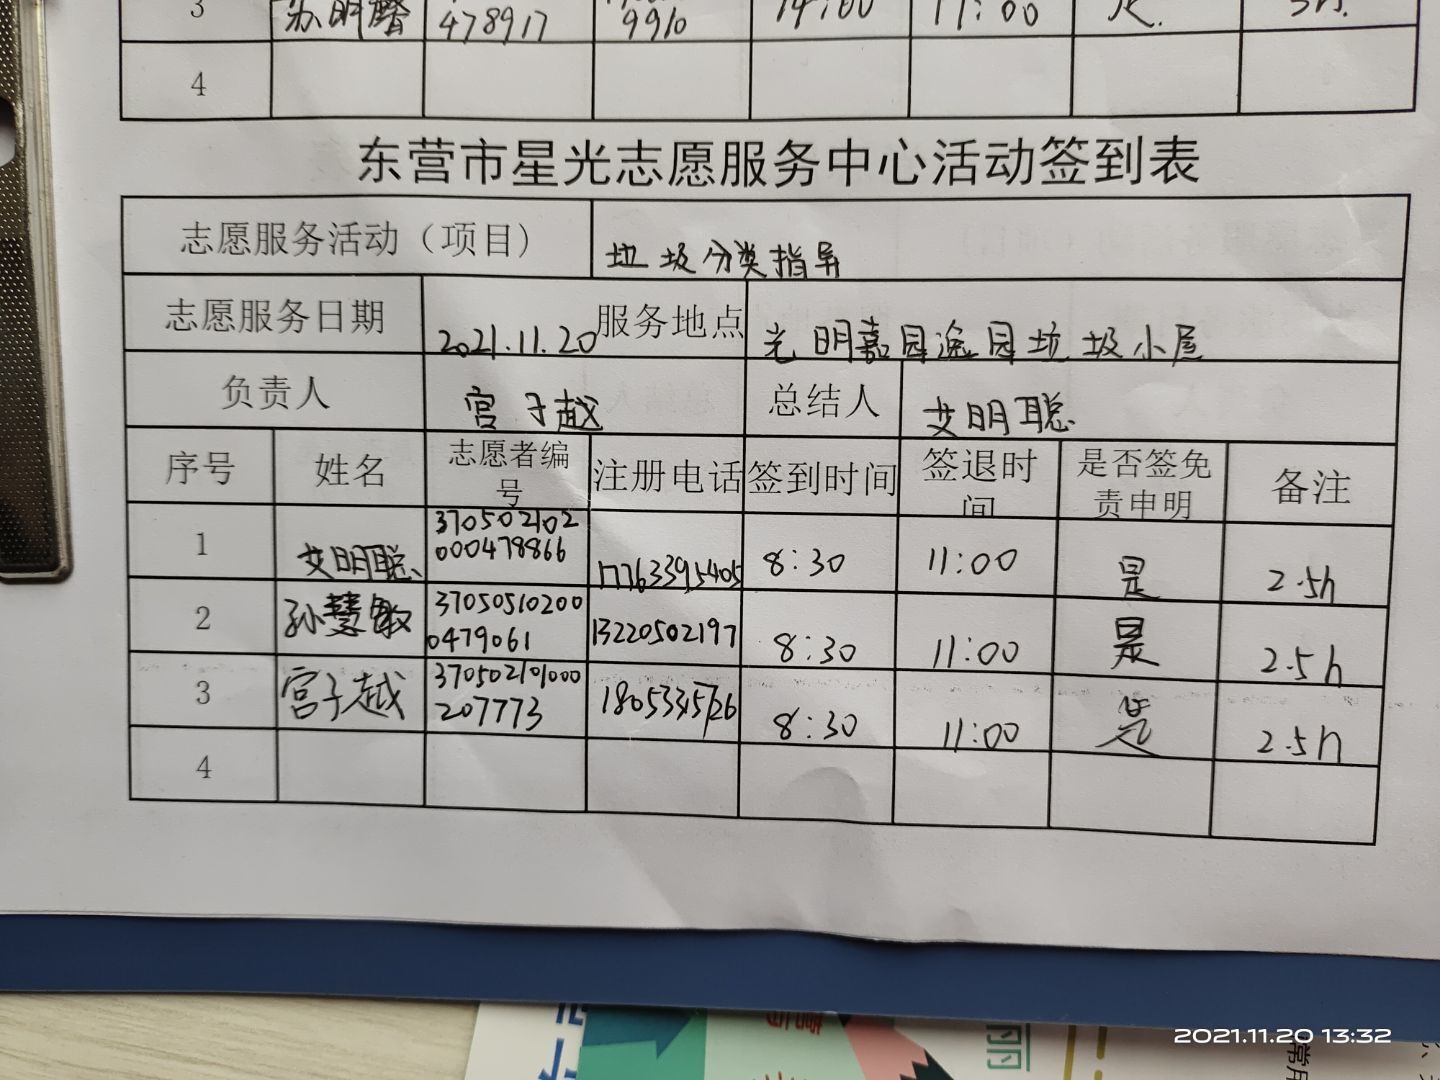 3 苏明馨 478917 9910 14:00 17:00 3h.
4
东营市星光志愿服务中心活动签到表
志愿服务活动（项目） 垃圾分类指导
志愿服务日期 2021.11.20 服务地点 光明嘉园逸园垃圾小屋
负责人 宫子越 总结人 艾明聪
序号 姓名 志愿者编号 注册电话 签到时间 签退时间 是否签免责申明 备注
1 艾明聪 370502102000478866 17763395405 8:30 11:00 是 2.5h
2 孙慧敏 370505102000479061 13220502197 8:30 11:00 是 2.5h
3 宫子越 370502101000207773 8:30 11:00 是 2.5h
4
2021.11.20 13:32